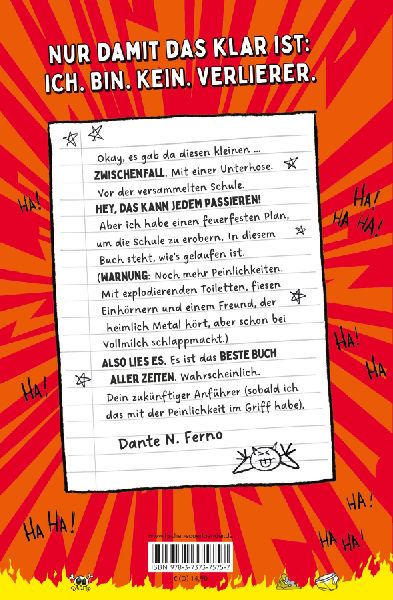 NUR DAMIT DAS KLAR IST:
ICH. BIN. KEIN. VERLIERER.
Okay, es gab da diesen kleinen ...
ZWISCHENFALL. Mit einer Unterhose.
Vor der versammelten Schule.
HEY, DAS KANN JEDEM PASSIEREN!
Aber ich habe einen feuerfesten Plan,
um die Schule zu erobern. In diesem
Buch steht, wie's gelaufen ist.
(WARNUNG: Noch mehr Peinlichkeiten.
Mit explodierenden Toiletten, fiesen
Einhörnern und einem Freund, der
heimlich Metal hört, aber schon bei
Vollmilch schlappmacht.)
ALSO LIES ES. Es ist das BESTE BUCH
ALLER ZEITEN. Wahrscheinlich.
Dein zukünftiger Anführer (sobald ich
das mit der Peinlichkeit im Griff habe),
Dante N. Ferno
HA!
HA!
HA HA!
HA!
HA
HA!
HA HA!
HA!
HA HA!
ISBN 978-3-7373-7375-7
€ (D) 14,90